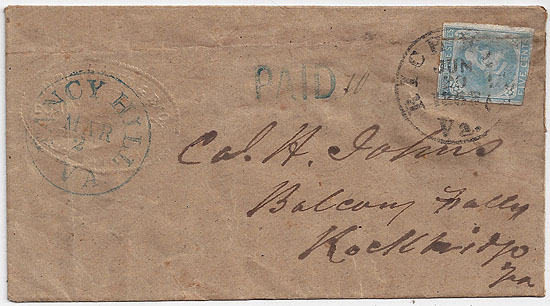 NCY HILL
VA
MAR
2
PAID 10
RICHMOND
Va.
JUN
FIVE CENTS
Col. H. Johns
Balcony Falls
Rockbridge
Va